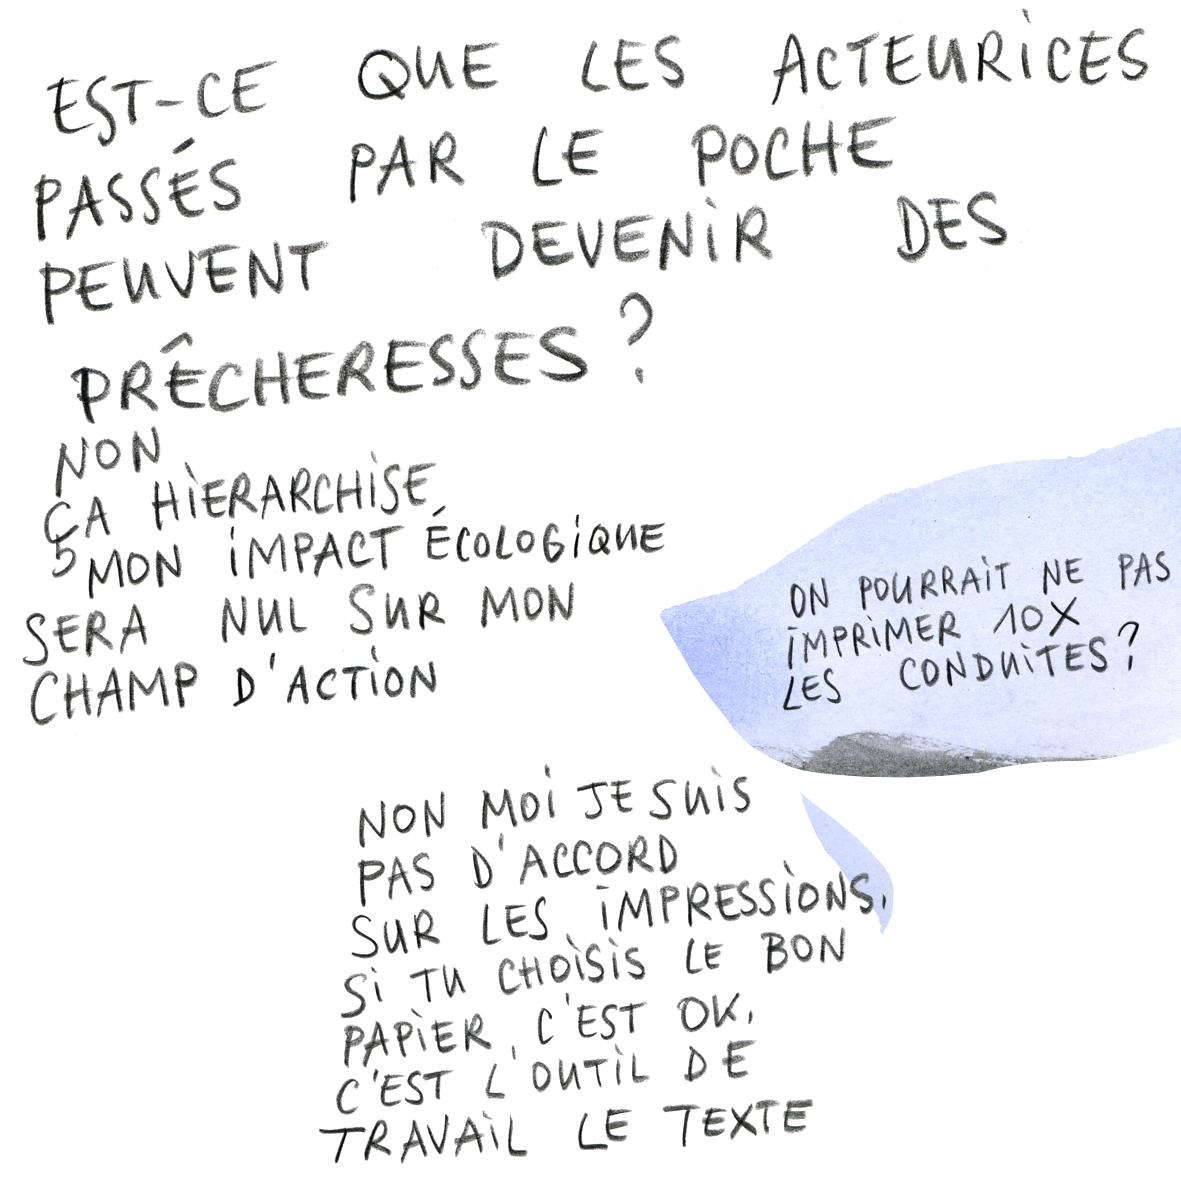 EST-CE QUE LES ACTEURICES
PASSÉS PAR LE POCHE
PEUVENT DEVENIR DES
PRÊCHERESSES ?
NON
ÇA HIERARCHISE
MON IMPACT ÉCOLOGIQUE
SERA NUL SUR MON
CHAMP D'ACTION
ON POURRAIT NE PAS
IMPRIMER 10X
LES CONDUITES ?
NON MOI JE SUIS
PAS D'ACCORD
SUR LES IMPRESSIONS,
SI TU CHOISIS LE BON
PAPIER, C'EST OK,
C'EST L'OUTIL DE
TRAVAIL LE TEXTE